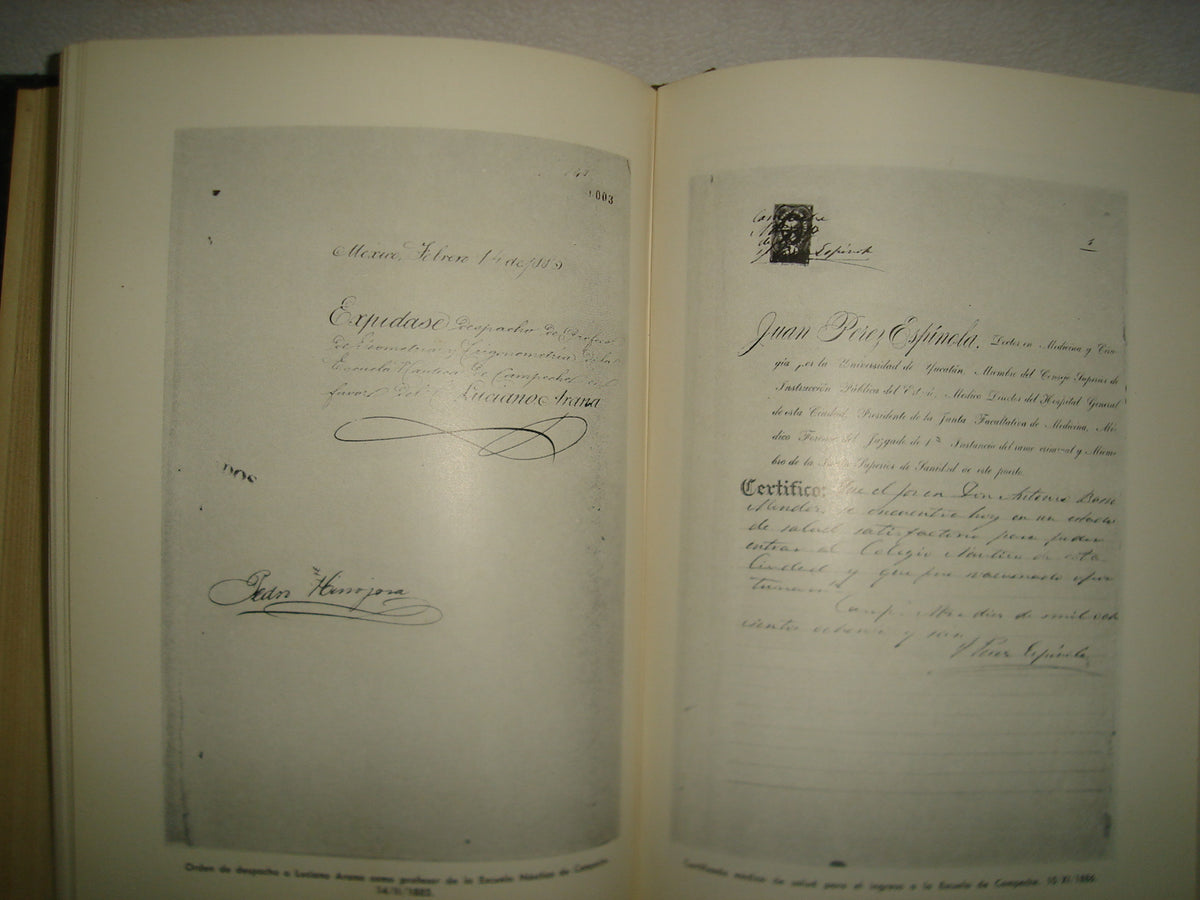 003
Mexico, Febrero 14 de 188
Expidase despacho de Profesor
de Geometria y Trigonometria de la
Escuela Nautica de Campeche
favor del Luciano Arana
DOS
Pedro Hinojosa
Orden de despacho a Luciano Arana como profesor de la Escuela Náutica de Campeche.
14/II/1885.
Espínola
Juan Perez Espínola, Doctor en Medicina y Ciru-
gía por la Universidad de Yucatán, Miembro del Consejo Superior de
Instrucción Pública del Est Médico Director del Hospital General
de esta Ciudad, Presidente de la Junta Facultativa de Medicina, Mé-
dico Forense del Juzgado de 1ª Instancia del ramo criminal y Miem-
bro de la Junta Superior de Sanidad de este puerto.
Certifico: Que el joven Don Antonio
Mendez se encuentra hoy en un estado
de salud satisfactorio para poder
entrar al Colegio Nautico de esta
Ciudad y que fue vacunado opor
tunam
diez de mil och
cientos ochenta y seis
J Perez Espínola
Certificado médico de salud para el ingreso a la Escuela de Campeche. 10/XI/1886.